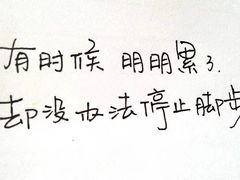 有时候 明明累了.
却没办法停止脚步